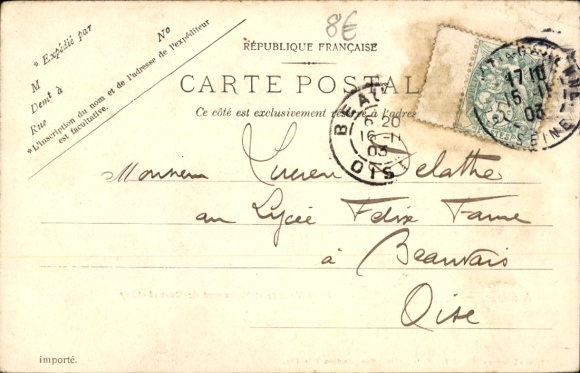 8€
RÉPUBLIQUE FRANÇAISE
CARTE POSTAL
Ce côté est exclusivement réservé à l'adre
* Expédié par
No
M
Demt à
Rue
*L'inscription du nom et de l'adresse de l'expéditeur
est facultative.
17 10
15 -11
03
SEINE
BEA
6 20
16 -11
03
OIS
Monsieur Lucien Delathe
au Lycée Felix Faure
à Beauvais
Oise
importé.